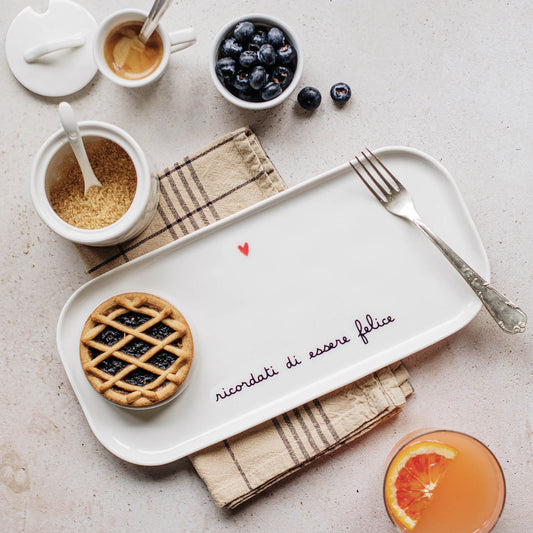 ricordati di essere felice